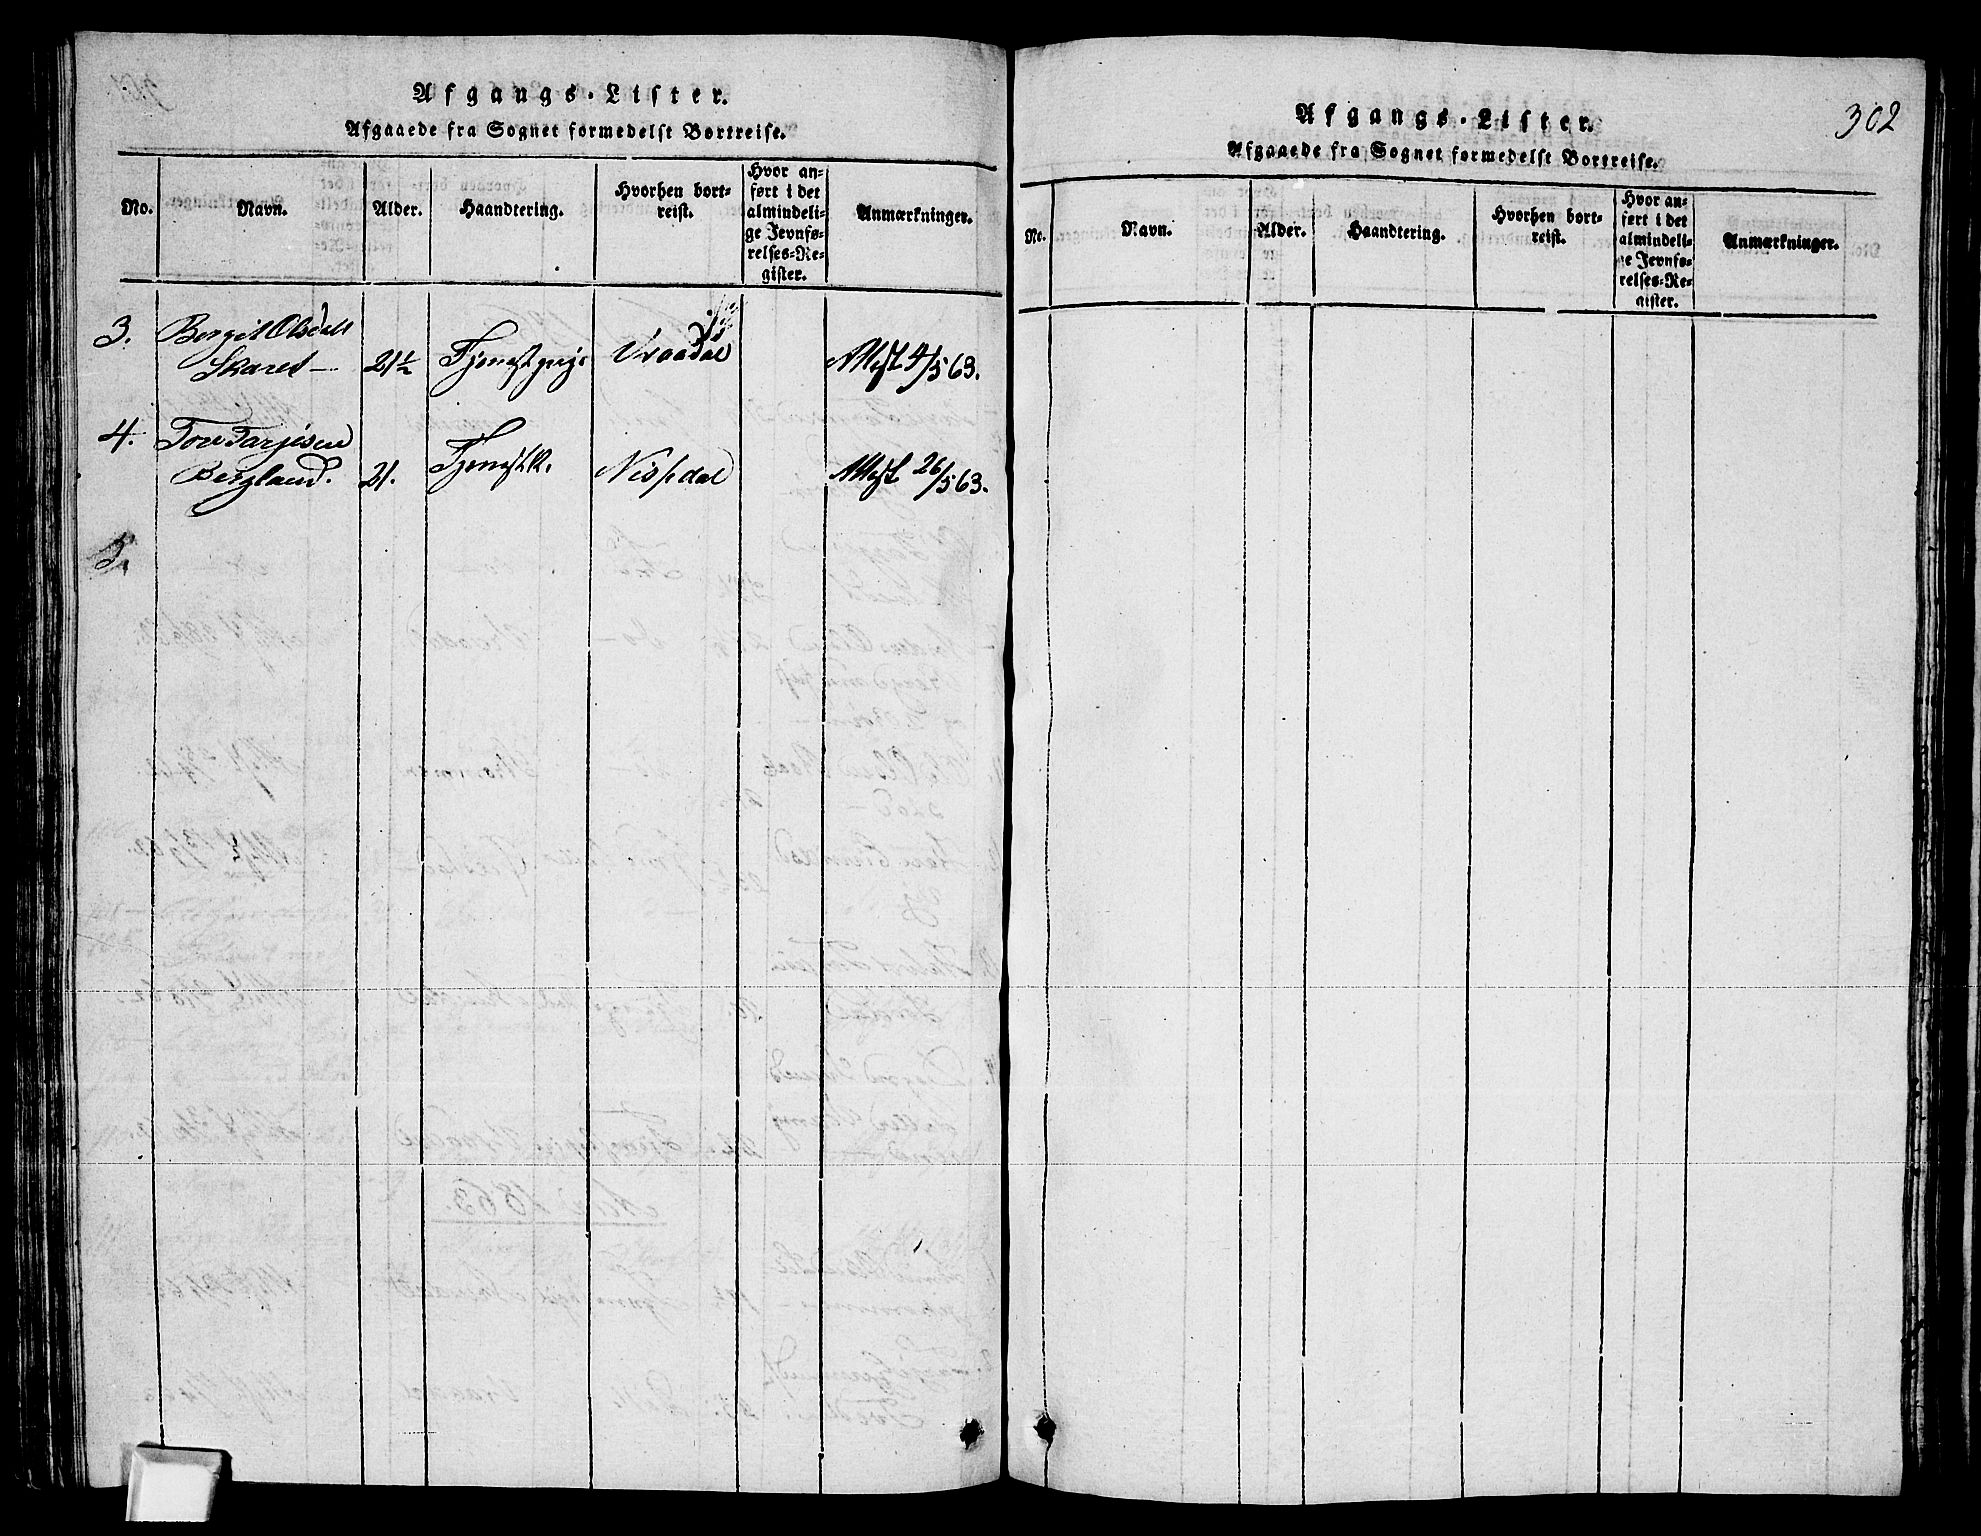 Afgangs-Lister.
Afgaaede fra Sognet formedelst Bortreise.
No.
Navn.
Alder.
Haandtering.
Hvorhen bort-
reist.
Hvor an-
ført i det
almindeli-
ge Jevnfø-
relses-Re-
gister.
Anmærkninger.
3. Bergit Olsdatt
Skaret — 21½ Tjenestpige Vraadal Attest 4/5 63.
4. Tov Tarjesen
Bergland. 21. Tjenestk. Nissedal Attest 26/5 63.
5.
302
Afgangs-Lister.
Afgaaede fra Sognet formedelst Bortreise.
No.
Navn.
Alder.
Haandtering.
Hvorhen bort-
reist.
Hvor an-
ført i det
almindeli-
ge Jevnfø-
relses-Re-
gister.
Anmærkninger.